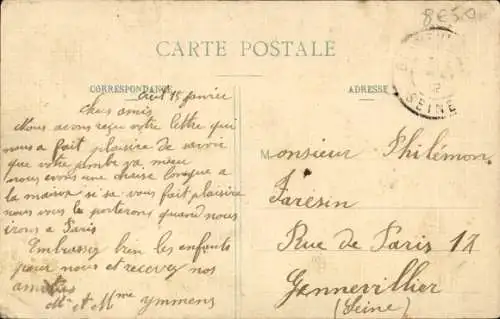 8€50
CARTE POSTALE
CORRESPONDANCE
ADRESSE
SEINE
15 janvier
Chers amis
Nous avons reçu votre lettre qui
nous a fait plaisire de savoir
que votre jambe ya mieu
nous avons une chause lorsque a
la maison si sa vous fait plaisire
nous vous le porterons quand nous
irons a Paris
Embrassez bien les enfants
pour nous et recevez nos
amitiés
Mr et Mme Ymmens
Monsieur Philémon
Faresin
Rue de Paris 12
Gennevillier
(Seine)